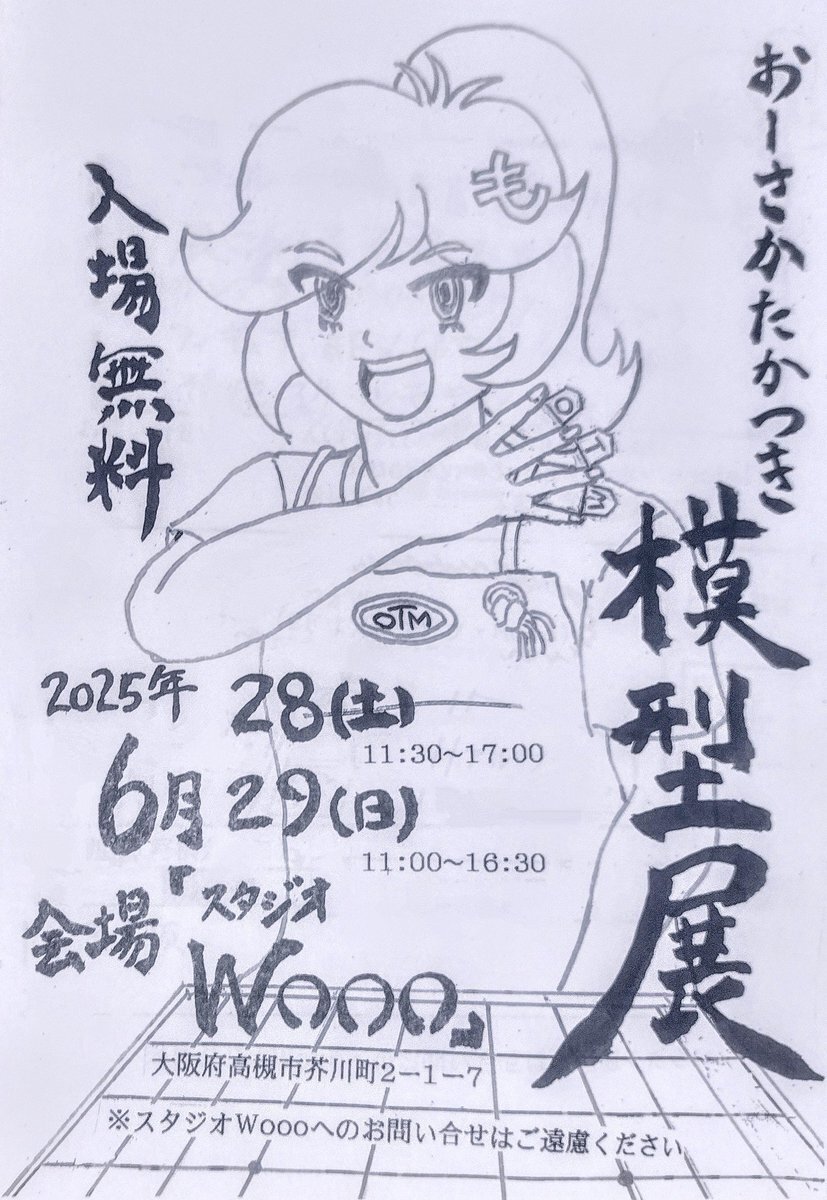 おーさかたかつき
模型展
入場無料
も
OTM
2025年
6月
28(土)
11:30~17:00
29(日)
11:00~16:30
会場
『スタジオ
Wooo』
大阪府高槻市芥川町2ー1ー7
※スタジオWoooへのお問い合せはご遠慮ください